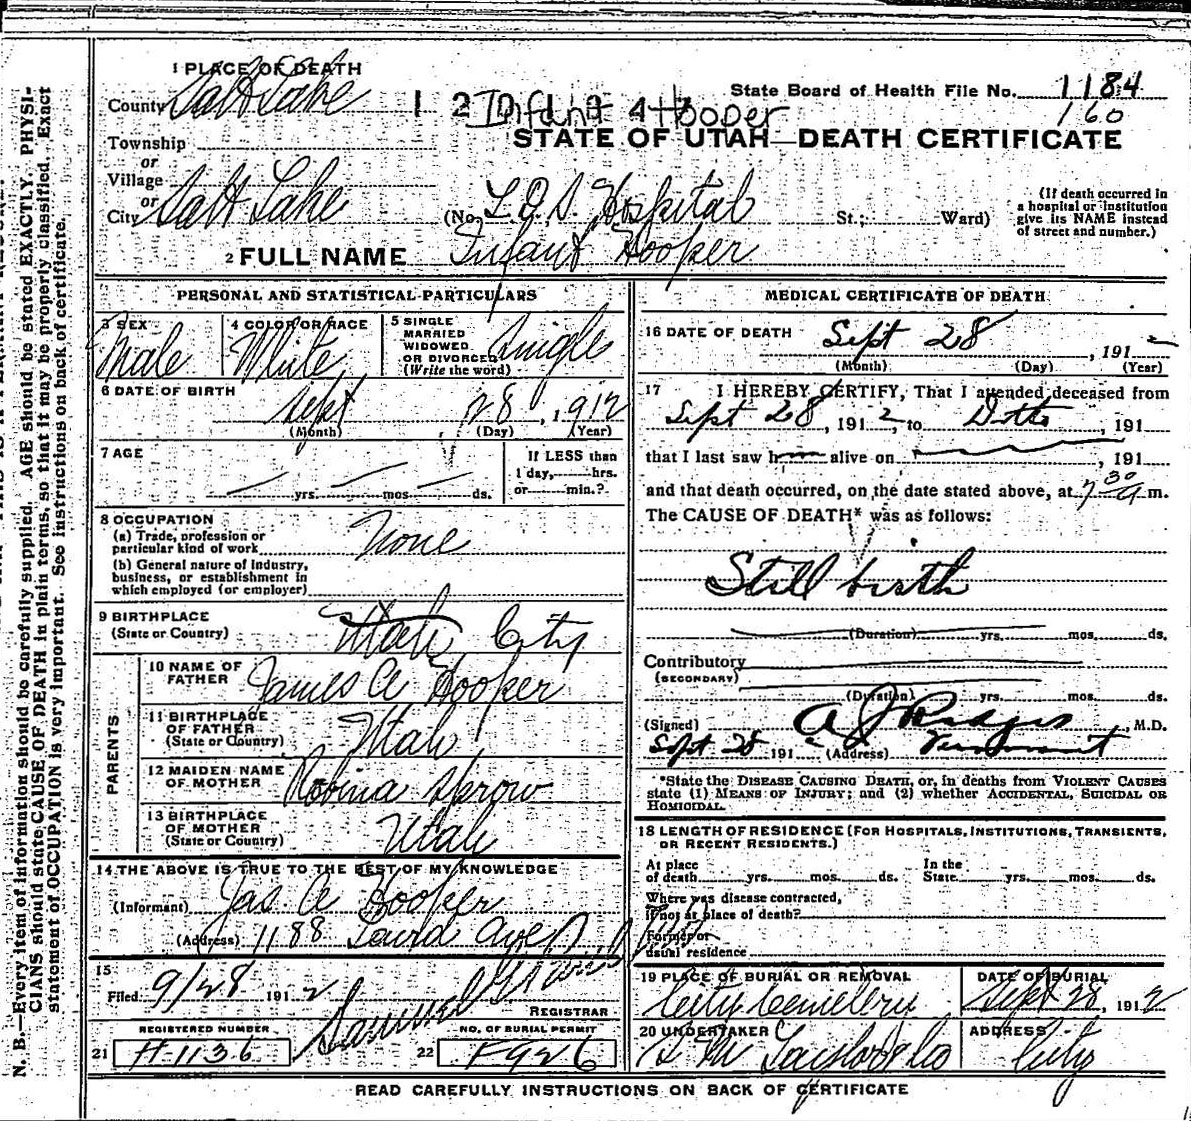 1 PLACE OF DEATH
County Salt Lake
Township
or
Village
or
City Salt Lake
1 2 Infant 4 Hooper
State Board of Health File No. 1184
160
STATE OF UTAH—DEATH CERTIFICATE
(No. L.D.S. Hospital St.; Ward)
(If death occurred in
a hospital or institution
give its NAME instead
of street and number.)
2 FULL NAME Infant Hooper
PERSONAL AND STATISTICAL PARTICULARS
3 SEX
Male
4 COLOR OR RACE
White
5 SINGLE
MARRIED
WIDOWED
OR DIVORCED
(Write the word)
Single
6 DATE OF BIRTH
Sept 28, 1912
(Month) (Day) (Year)
7 AGE
yrs. mos. ds.
If LESS than
1 day, hrs.
or min.?
8 OCCUPATION
(a) Trade, profession or
particular kind of work None
(b) General nature of Industry,
business, or establishment in
which employed (or employer)
9 BIRTHPLACE
(State or Country) Utah City
PARENTS
10 NAME OF
FATHER James A Hooper
11 BIRTHPLACE
OF FATHER
(State or Country) Utah
12 MAIDEN NAME
OF MOTHER Robina Sprow
13 BIRTHPLACE
OF MOTHER
(State or Country) Utah
14 THE ABOVE IS TRUE TO THE BEST OF MY KNOWLEDGE
(Informant) Jas. A Hooper
(Address) 1188 Laird Ave
15
Filed 9/28 1912 Samuel
REGISTRAR
REGISTERED NUMBER
21 H 1136
NO. OF BURIAL PERMIT
22 F926
MEDICAL CERTIFICATE OF DEATH
16 DATE OF DEATH Sept 28, 1912
(Month) (Day) (Year)
17 I HEREBY CERTIFY, That I attended deceased from
Sept 28, 1912, to Ditto, 191
that I last saw h alive on , 191
and that death occurred, on the date stated above, at 7 30 A m.
The CAUSE OF DEATH* was as follows:
Still birth
(Duration) yrs. mos. ds.
Contributory
(SECONDARY)
(Duration) yrs. mos. ds.
(Signed) A J Ridges M.D.
Sept 28 1912 (Address) Vermont
*State the DISEASE CAUSING DEATH, or, in deaths from VIOLENT CAUSES
state (1) MEANS OF INJURY; and (2) whether ACCIDENTAL, SUICIDAL OR
HOMICIDAL.
18 LENGTH OF RESIDENCE (FOR HOSPITALS, INSTITUTIONS, TRANSIENTS,
OR RECENT RESIDENTS.)
At place
of death yrs. mos. ds.
In the
State yrs. mos. ds.
Where was disease contracted,
if not at place of death?
Former or
usual residence
19 PLACE OF BURIAL OR REMOVAL
City Cemetery
DATE OF BURIAL
Sept 28, 1912
20 UNDERTAKER
S M Taylor & Co
ADDRESS
City
READ CAREFULLY INSTRUCTIONS ON BACK OF CERTIFICATE
N. B.—Every item of information should be carefully supplied. AGE should be stated EXACTLY. PHYSI-
CIANS should state CAUSE OF DEATH in plain terms, so that it may be properly classified. Exact
statement of OCCUPATION is very important. See instructions on back of certificate.